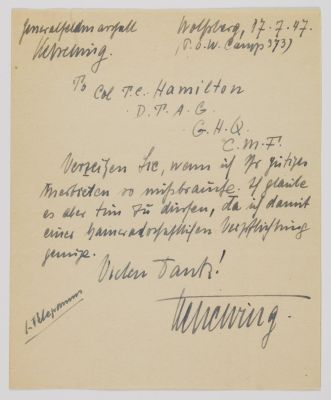 Generalfeldmarschall Wolfsberg, 17.7.47.
Kesselring. (P.O.W. Camp 373)
To Col T.C. Hamilton
D.P.A.G.
G.H.Q.
C.M.F.
Verzeihen Sie, wenn ich Ihr gütiges
Anerbieten so mißbrauche. Ich glaube
es aber tun zu dürfen, da ich damit
einer kameradschaftlichen Verpflichtung
genüge.
Vielen Dank!
Kesselring.